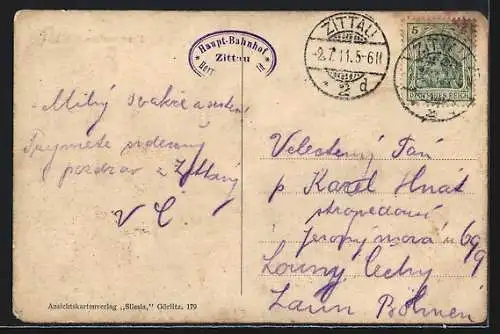 Haupt-Bahnhof
Zittau
ZITTAU
-2.7.11.5-6N
* 2 d
5
ZITTAU
DEUTSCHES REICH
Milý svakře a sestro
Přijměte srdečný
pozdrav z Žittavy
V Č
Velectěný Pán
p Karel Hnát
Jeronýmová u 699
Louny Čechy
Laun Böhmen
Ansichtskartenverlag „Silesia,“ Görlitz. 179